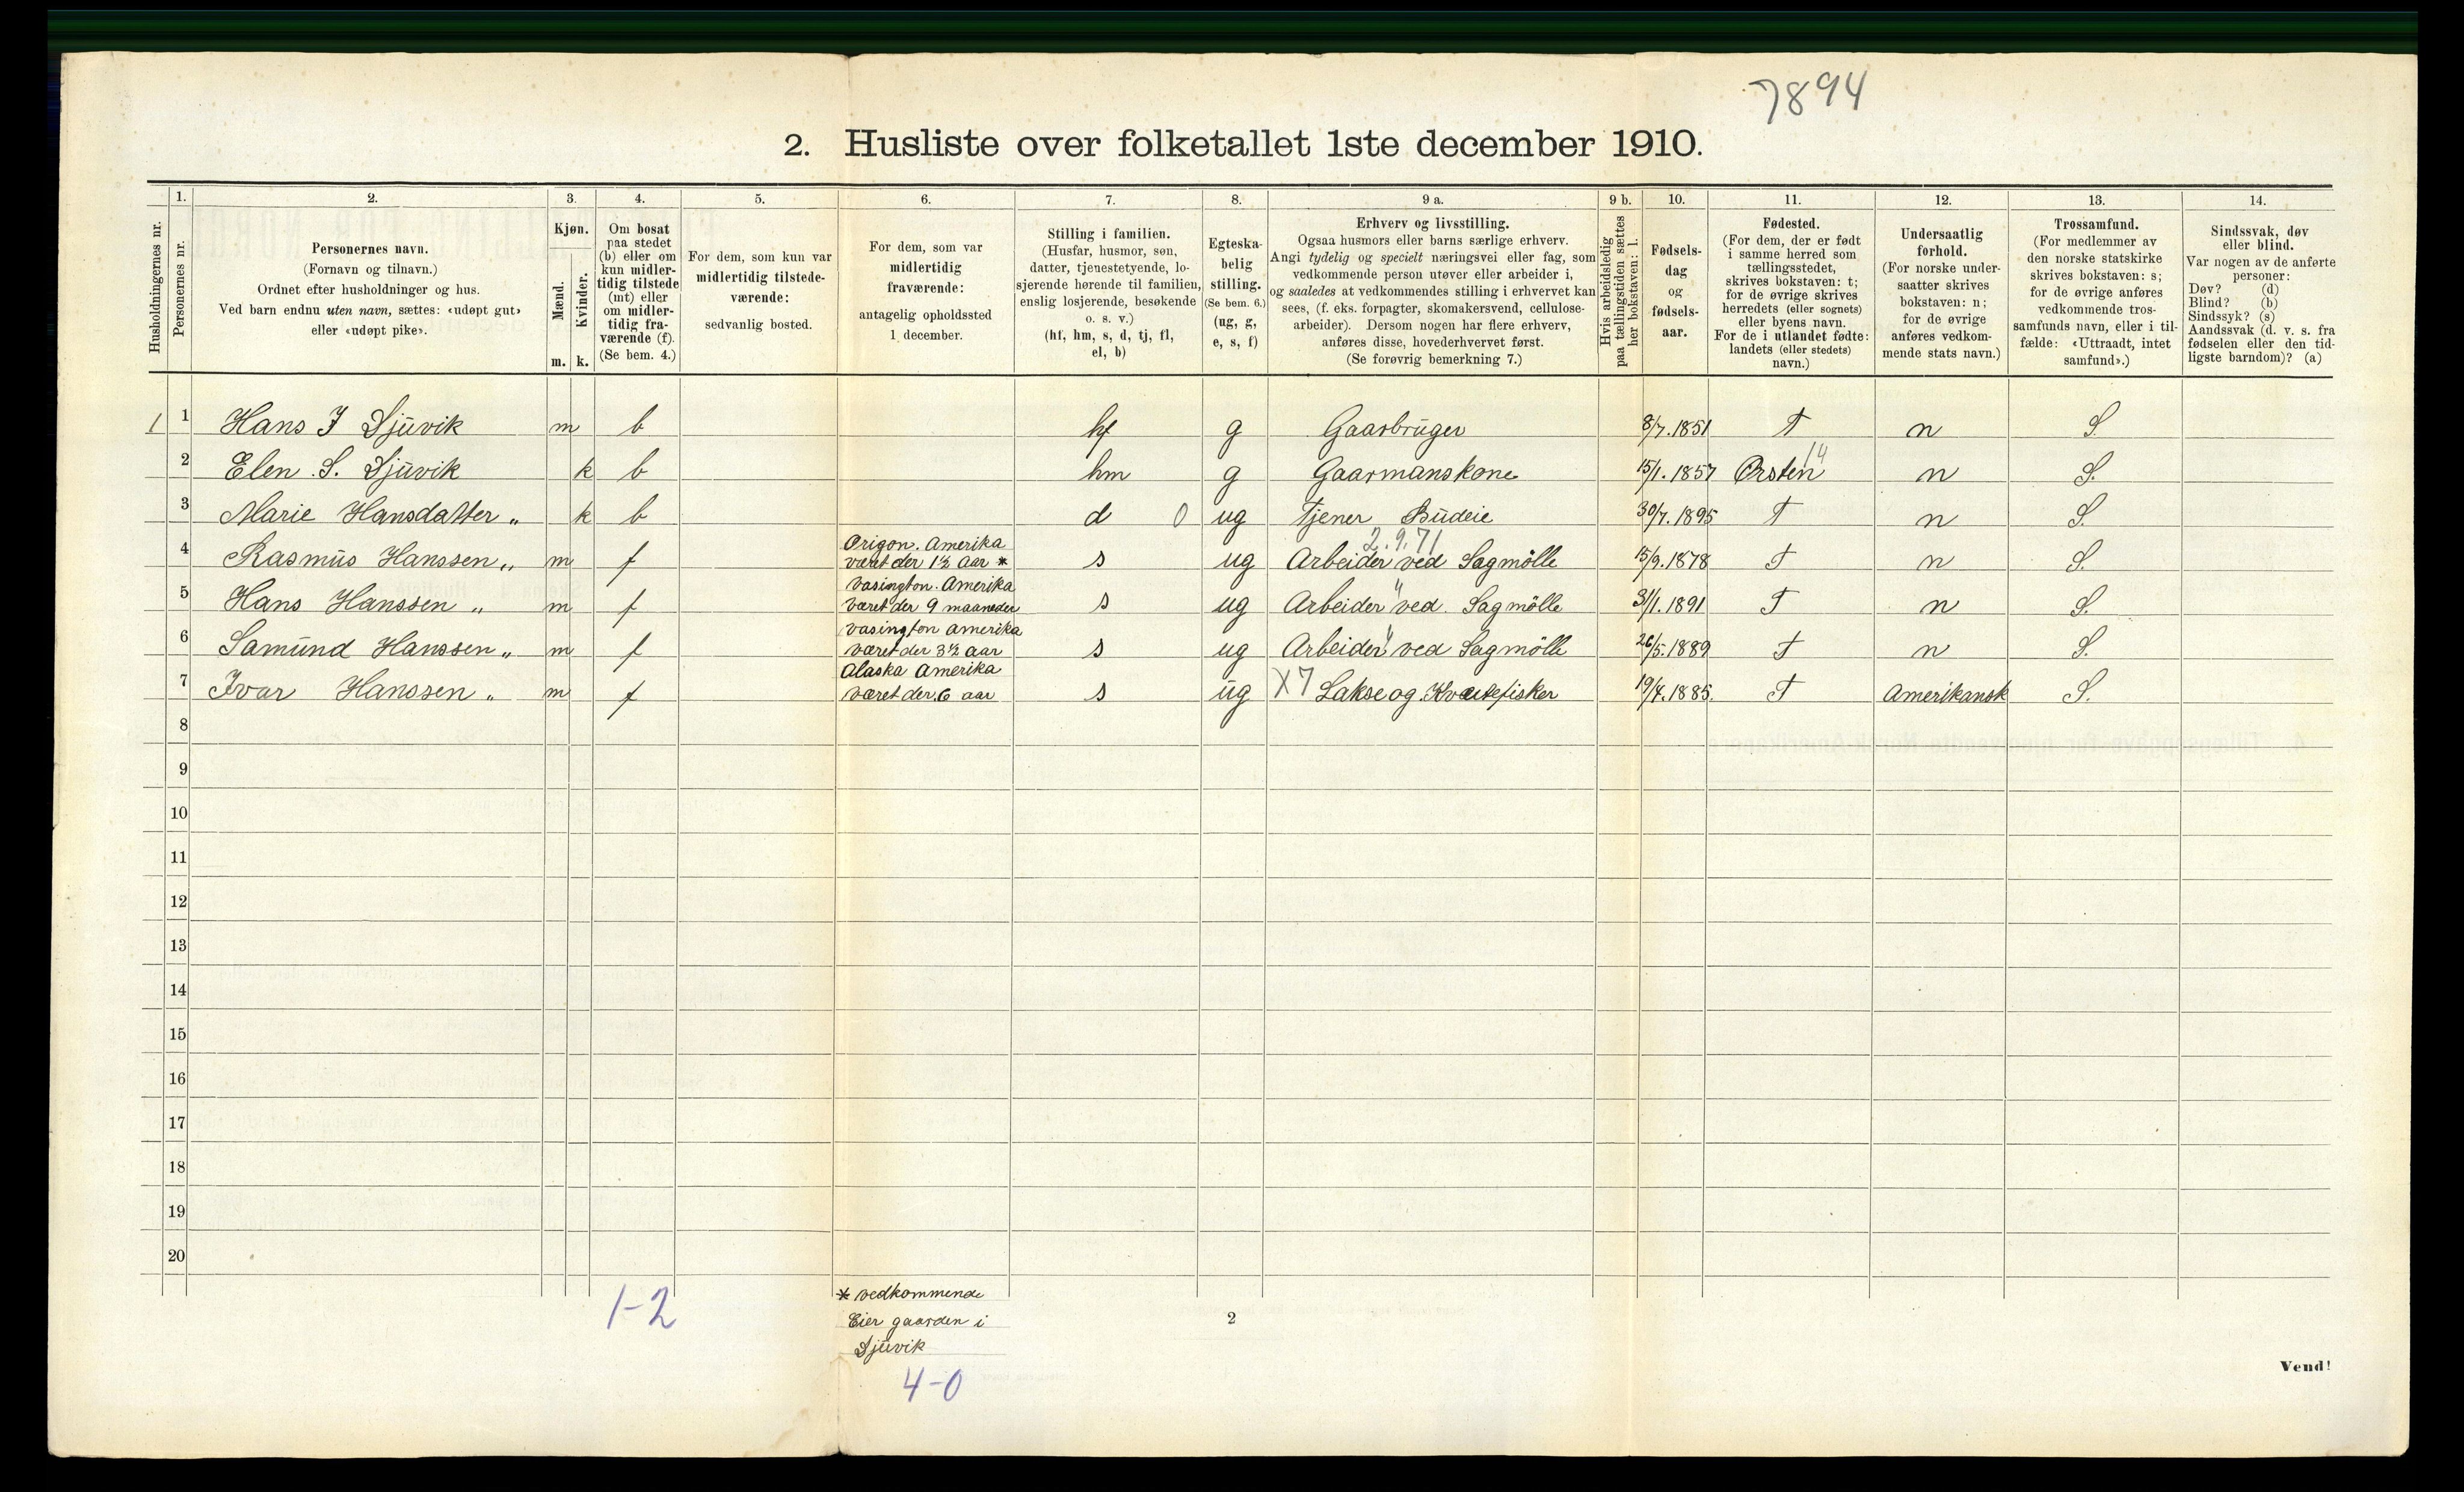 7894
2. Husliste over folketallet 1ste december 1910.
Husholdningernes nr.
1.
Personernes nr.
2.
Personernes navn.
(Fornavn og tilnavn.)
Ordnet efter husholdninger og hus.
Ved barn endnu uten navn, sættes: «udøpt gut»
eller «udøpt pike».
3.
Kjøn.
Mænd.
Kvinder.
m. k.
4.
Om bosat
paa stedet
(b) eller om
kun midler-
tidig tilstede
(mt) eller
om midler-
tidig fra-
værende (f).
(Se bem. 4.)
5.
For dem, som kun var
midlertidig tilstede-
værende:
sedvanlig bosted.
6.
For dem, som var
midlertidig
fraværende:
antagelig opholdssted
1 december.
7.
Stilling i familien.
(Husfar, husmor, søn,
datter, tjenestetyende, lo-
sjerende hørende til familien,
enslig losjerende, besøkende
o. s. v.)
(hf, hm, s, d, tj, fl,
el, b)
8.
Egteska-
belig
stilling.
(Se bem. 6.)
(ug, g,
e, s, f)
9 a.
Erhverv og livsstilling.
Ogsaa husmors eller barns særlige erhverv.
Angi tydelig og specielt næringsvei eller fag, som
vedkommende person utøver eller arbeider i,
og saaledes at vedkommendes stilling i erhvervet kan
sees, (f. eks. forpagter, skomakersvend, cellulose-
arbeider). Dersom nogen har flere erhverv,
anføres disse, hovederhvervet først.
(Se forøvrig bemerkning 7.)
9 b.
Hvis arbeidsledig
paa tællingstiden sættes
her bokstaven: l.
10.
Fødsels-
dag
og
fødsels-
aar.
11.
Fødested.
(For dem, der er født
i samme herred som
tællingsstedet,
skrives bokstaven: t;
for de øvrige skrives
herredets (eller sognets)
eller byens navn.
For de i utlandet fødte:
landets (eller stedets)
navn.)
12.
Undersaatlig
forhold.
(For norske under-
saatter skrives
bokstaven: n;
for de øvrige
anføres vedkom-
mende stats navn.)
13.
Trossamfund.
(For medlemmer av
den norske statskirke
skrives bokstaven: s;
for de øvrige anføres
vedkommende tros-
samfunds navn, eller i til-
fælde: «Uttraadt, intet
samfund».)
14.
Sindssvak, døv
eller blind.
Var nogen av de anførte
personer:
Døv? (d)
Blind? (b)
Sindssyk? (s)
Aandssvak (d. v. s. fra
fødselen eller den tid-
ligste barndom)? (a)
1 1 Hans J Sjüvik m b hf g Gaarbrüger 8/7.1851 T n S.
14
2 Elen S. Sjüvik k b hm g Gaarmanskone 15/1.1857 Ørsten n S.
3 Marie Hansdatter " k b d 0 ug Tjener Büdeie 30/7.1895 T n S.
2.9.71
Origon. Amerika
4 Rasmüs Hanssen " m f været der 1½ Aar * s ug Arbeider ved Sagmölle 15/9.1878 T n S.
Vasington. Amerika
5 Hans Hanssen " m f Været der 9 maaneder s ug Arbeider " ved. Sagmölle 31/1.1891 T n S.
Vasington Amerika
6 Samünd Hanssen " m f været der 3½ aar s ug Arbeider " ved Sagmölle 26/5.1889 T n S.
Alaska Amerika
7 Ivar Hanssen " m f været der 6 aar s üg X7 Lakse og Kveitefisker 19/4.1885. T Amerikansk S.
8
9
10
11
12
13
14
15
16
17
18
19
20
1-2
* vedkommende
Eier gaarden i
Sjüvik
4-0
2
Vend!